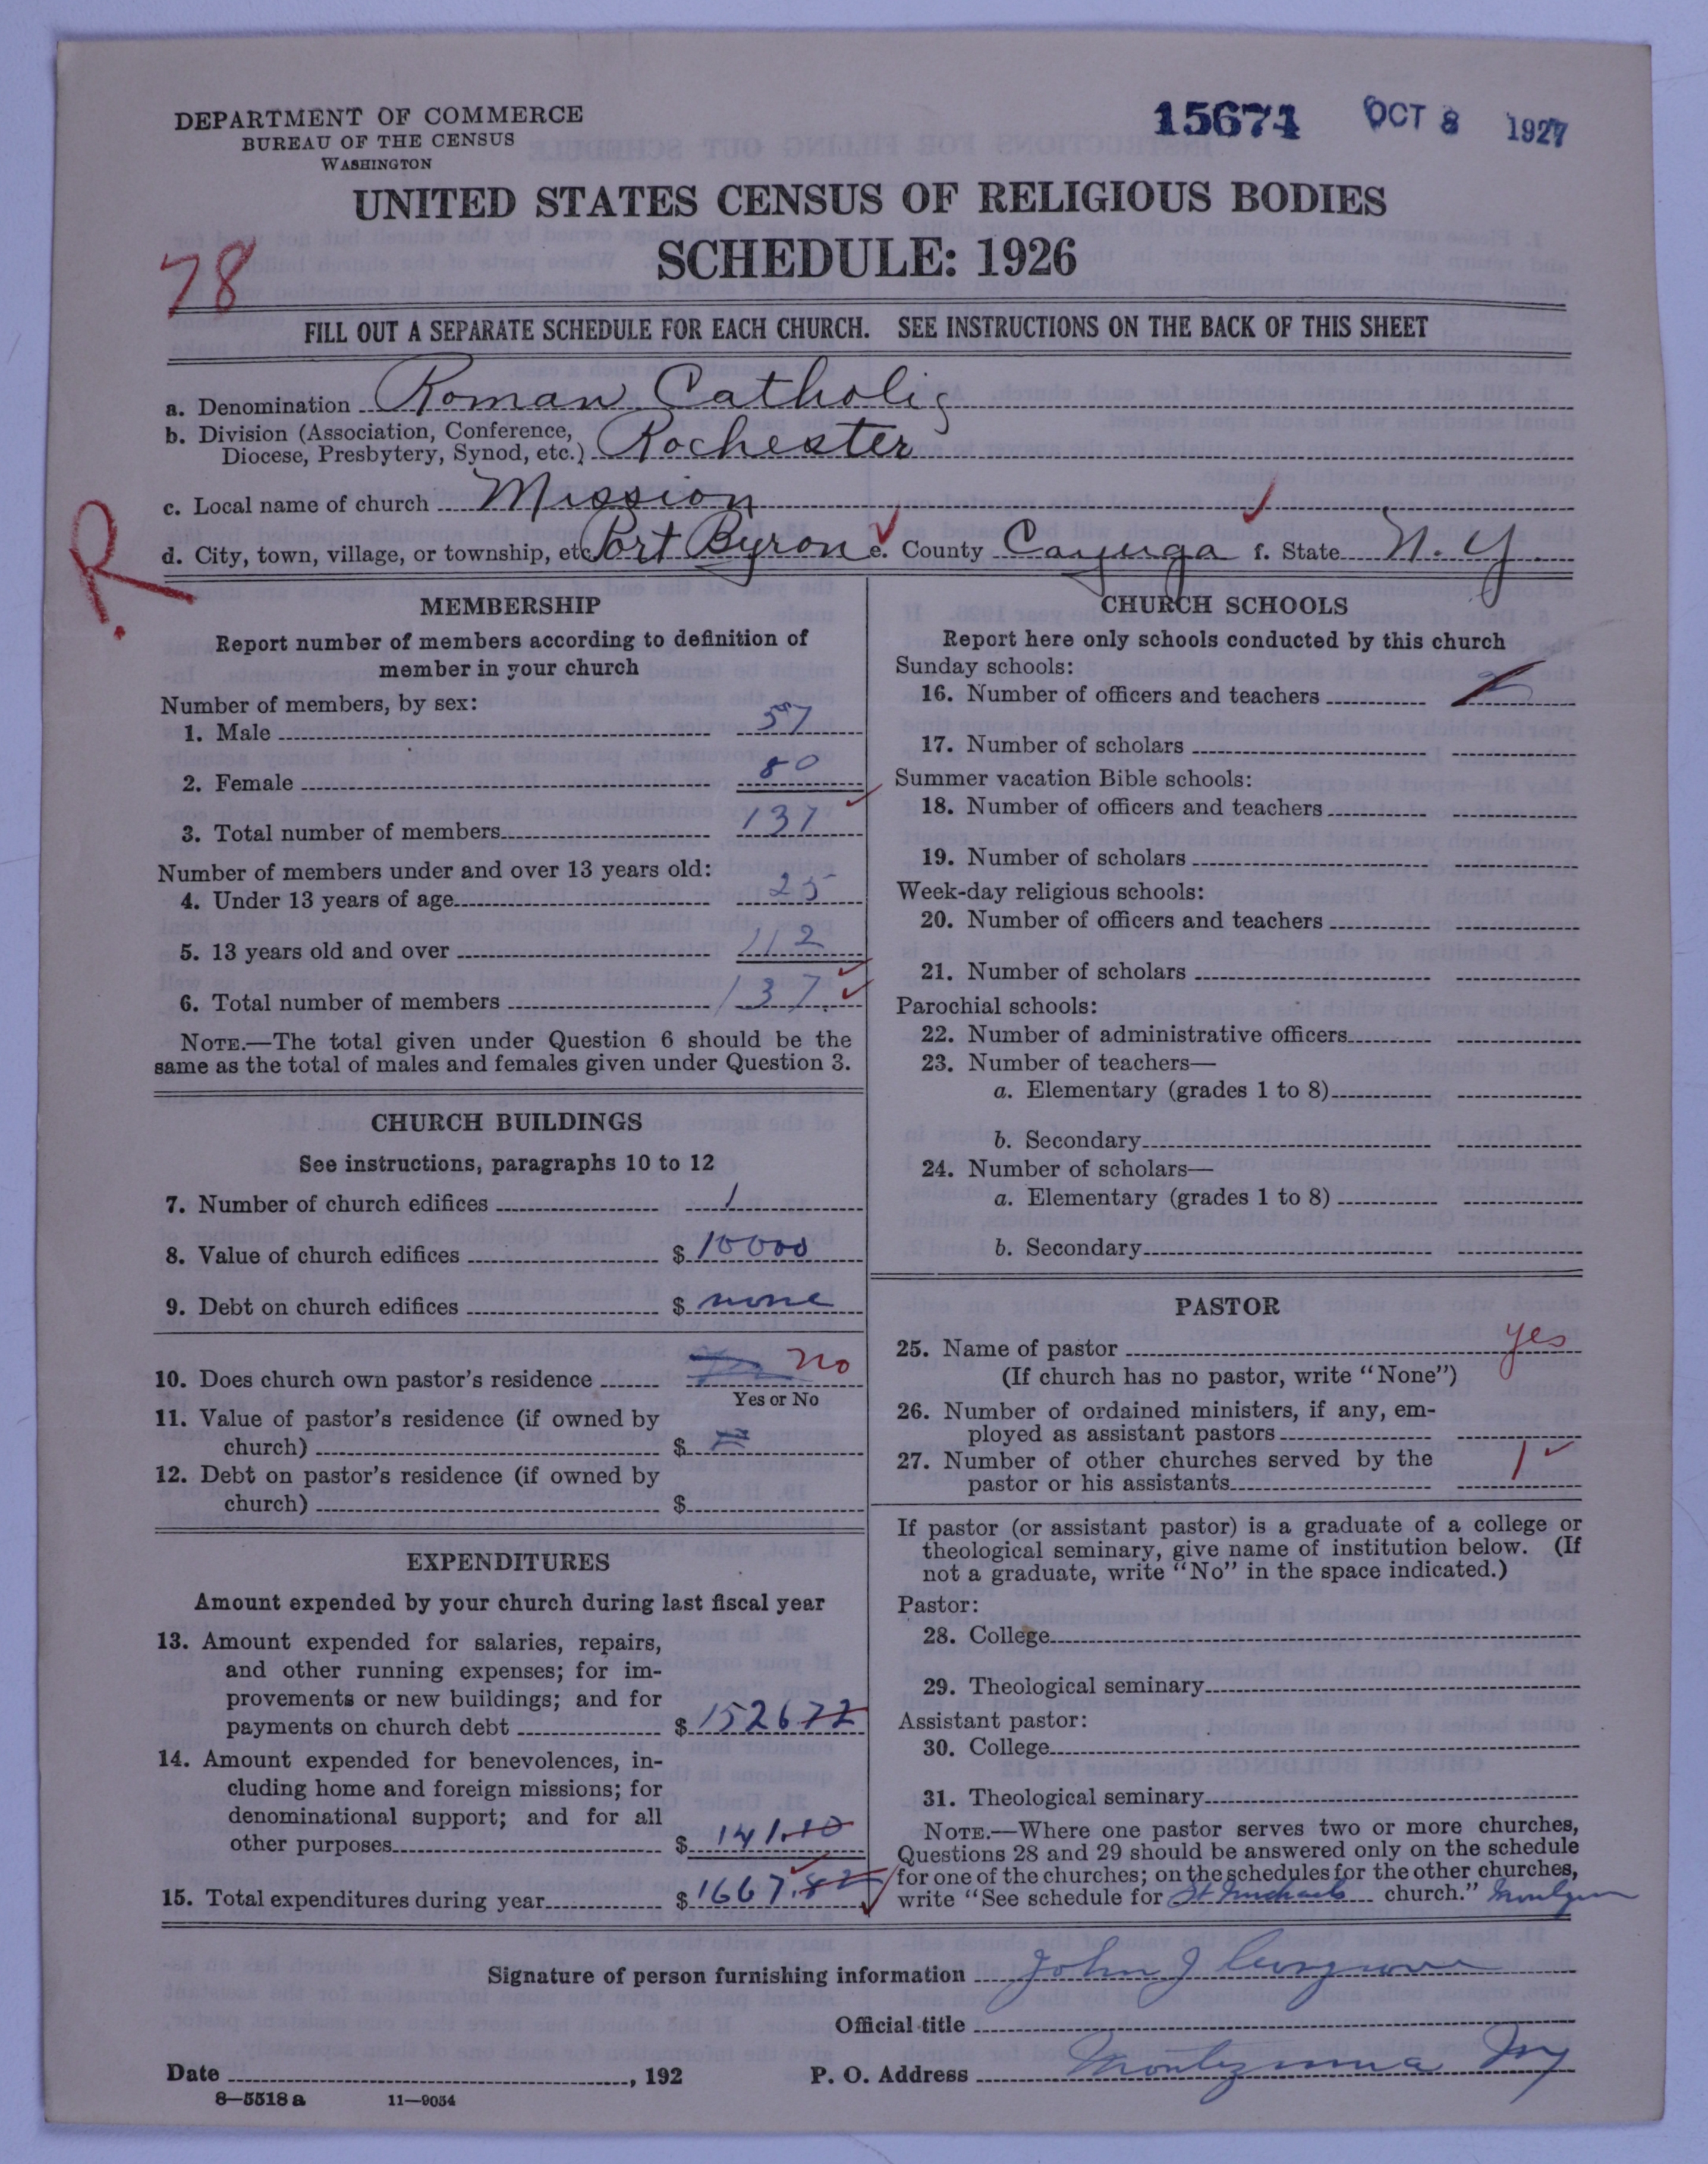 DEPARTMENT OF COMMERCE
BUREAU OF THE CENSUS
WASHINGTON
15674 OCT 8 1927
UNITED STATES CENSUS OF RELIGIOUS BODIES
SCHEDULE: 1926
78
FILL OUT A SEPARATE SCHEDULE FOR EACH CHURCH. SEE INSTRUCTIONS ON THE BACK OF THIS SHEET
a. Denomination Roman Catholic
b. Division (Association, Conference,
Diocese, Presbytery, Synod, etc.) Rochester
c. Local name of church Mission
R.
d. City, town, village, or township, etc Port Byron e. County Cayuga f. State N. Y.
MEMBERSHIP
Report number of members according to definition of
member in your church
Number of members, by sex:
1. Male 57
2. Female 80
3. Total number of members 137
Number of members under and over 13 years old:
4. Under 13 years of age 25
5. 13 years old and over 112
6. Total number of members 137
NOTE.—The total given under Question 6 should be the
same as the total of males and females given under Question 3.
CHURCH BUILDINGS
See instructions, paragraphs 10 to 12
7. Number of church edifices 1
8. Value of church edifices $ 10000
9. Debt on church edifices $ none
10. Does church own pastor's residence no
Yes or No
11. Value of pastor's residence (if owned by
church) $
12. Debt on pastor's residence (if owned by
church) $
EXPENDITURES
Amount expended by your church during last fiscal year
13. Amount expended for salaries, repairs,
and other running expenses; for im-
provements or new buildings; and for
payments on church debt $ 152672
14. Amount expended for benevolences, in-
cluding home and foreign missions; for
denominational support; and for all
other purposes $ 141.10
15. Total expenditures during year $ 1667.82
CHURCH SCHOOLS
Report here only schools conducted by this church
Sunday schools:
16. Number of officers and teachers
17. Number of scholars
Summer vacation Bible schools:
18. Number of officers and teachers
19. Number of scholars
Week-day religious schools:
20. Number of officers and teachers
21. Number of scholars
Parochial schools:
22. Number of administrative officers
23. Number of teachers—
a. Elementary (grades 1 to 8)
b. Secondary
24. Number of scholars—
a. Elementary (grades 1 to 8)
b. Secondary
PASTOR
25. Name of pastor yes
(If church has no pastor, write "None")
26. Number of ordained ministers, if any, em-
ployed as assistant pastors
27. Number of other churches served by the
pastor or his assistants 1
If pastor (or assistant pastor) is a graduate of a college or
theological seminary, give name of institution below. (If
not a graduate, write "No" in the space indicated.)
Pastor:
28. College
29. Theological seminary
Assistant pastor:
30. College
31. Theological seminary
NOTE.—Where one pastor serves two or more churches,
Questions 28 and 29 should be answered only on the schedule
for one of the churches; on the schedules for the other churches,
write "See schedule for St Michaels church."
Signature of person furnishing information John J Cosgrove
Official title
Date , 192
P. O. Address Montezuma Ny
8—5518 a 11—9054